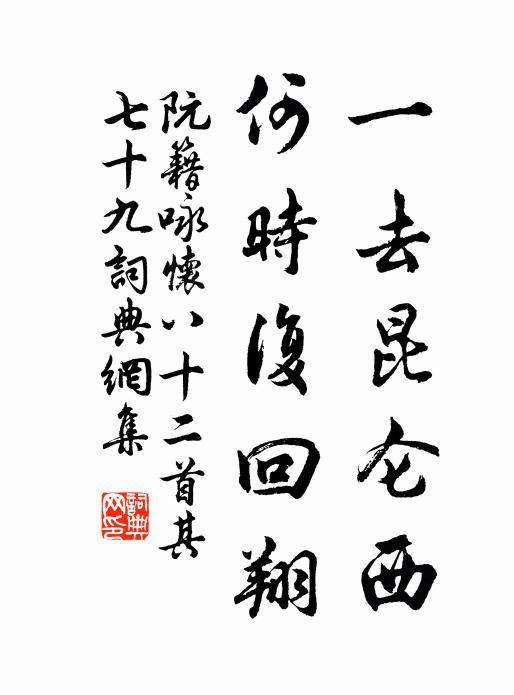 一去昆仑西
何時復回翔
阮籍咏懷八十二首其
七十九詞典網集
詞典
網印